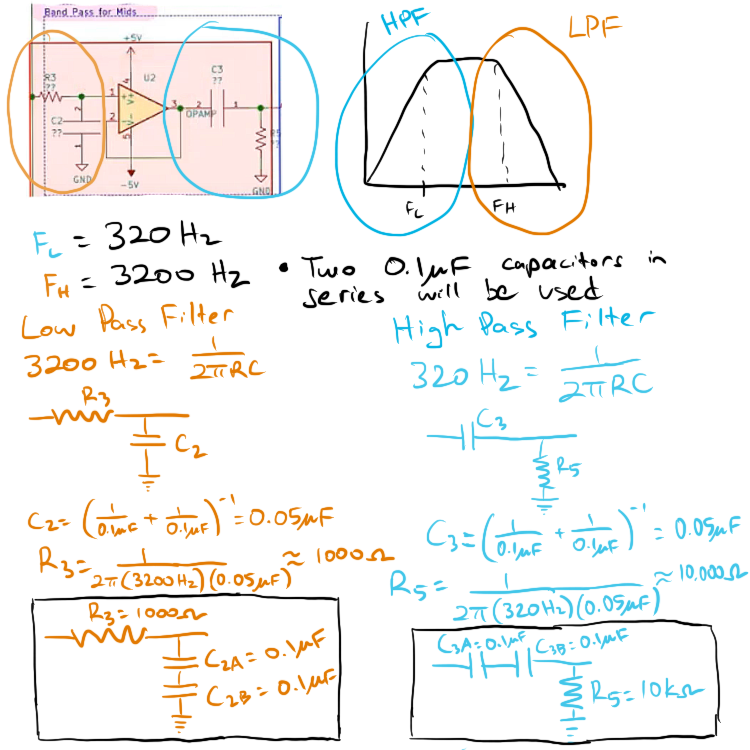 Band Pass for Mids
+5V
R3
??
C2
??
2
1
GND
U2
4
1
+
V+
2
-
V-
5
3
OPAMP
-5V
C3
??
2
1
R5
??
GND
HPF
LPF
FL
FH
FL = 320 Hz
FH = 3200 Hz
• Two 0.1μF capacitors in
series will be used
Low Pass Filter
3200 Hz = 1/2πRC
R3
C2
C2 = (1/0.1μF + 1/0.1μF)⁻¹ = 0.05μF
R3 = 1/2π(3200Hz)(0.05μF) ≈ 1000Ω
R3 = 1000Ω
C2A = 0.1μF
C2B = 0.1μF
High Pass Filter
320 Hz = 1/2πRC
C3
R5
C3 = (1/0.1μF + 1/0.1μF)⁻¹ = 0.05μF
R5 = 1/2π(320Hz)(0.05μF) ≈ 10.000Ω
C3A = 0.1μF C3B = 0.1μF
R5 = 10kΩ